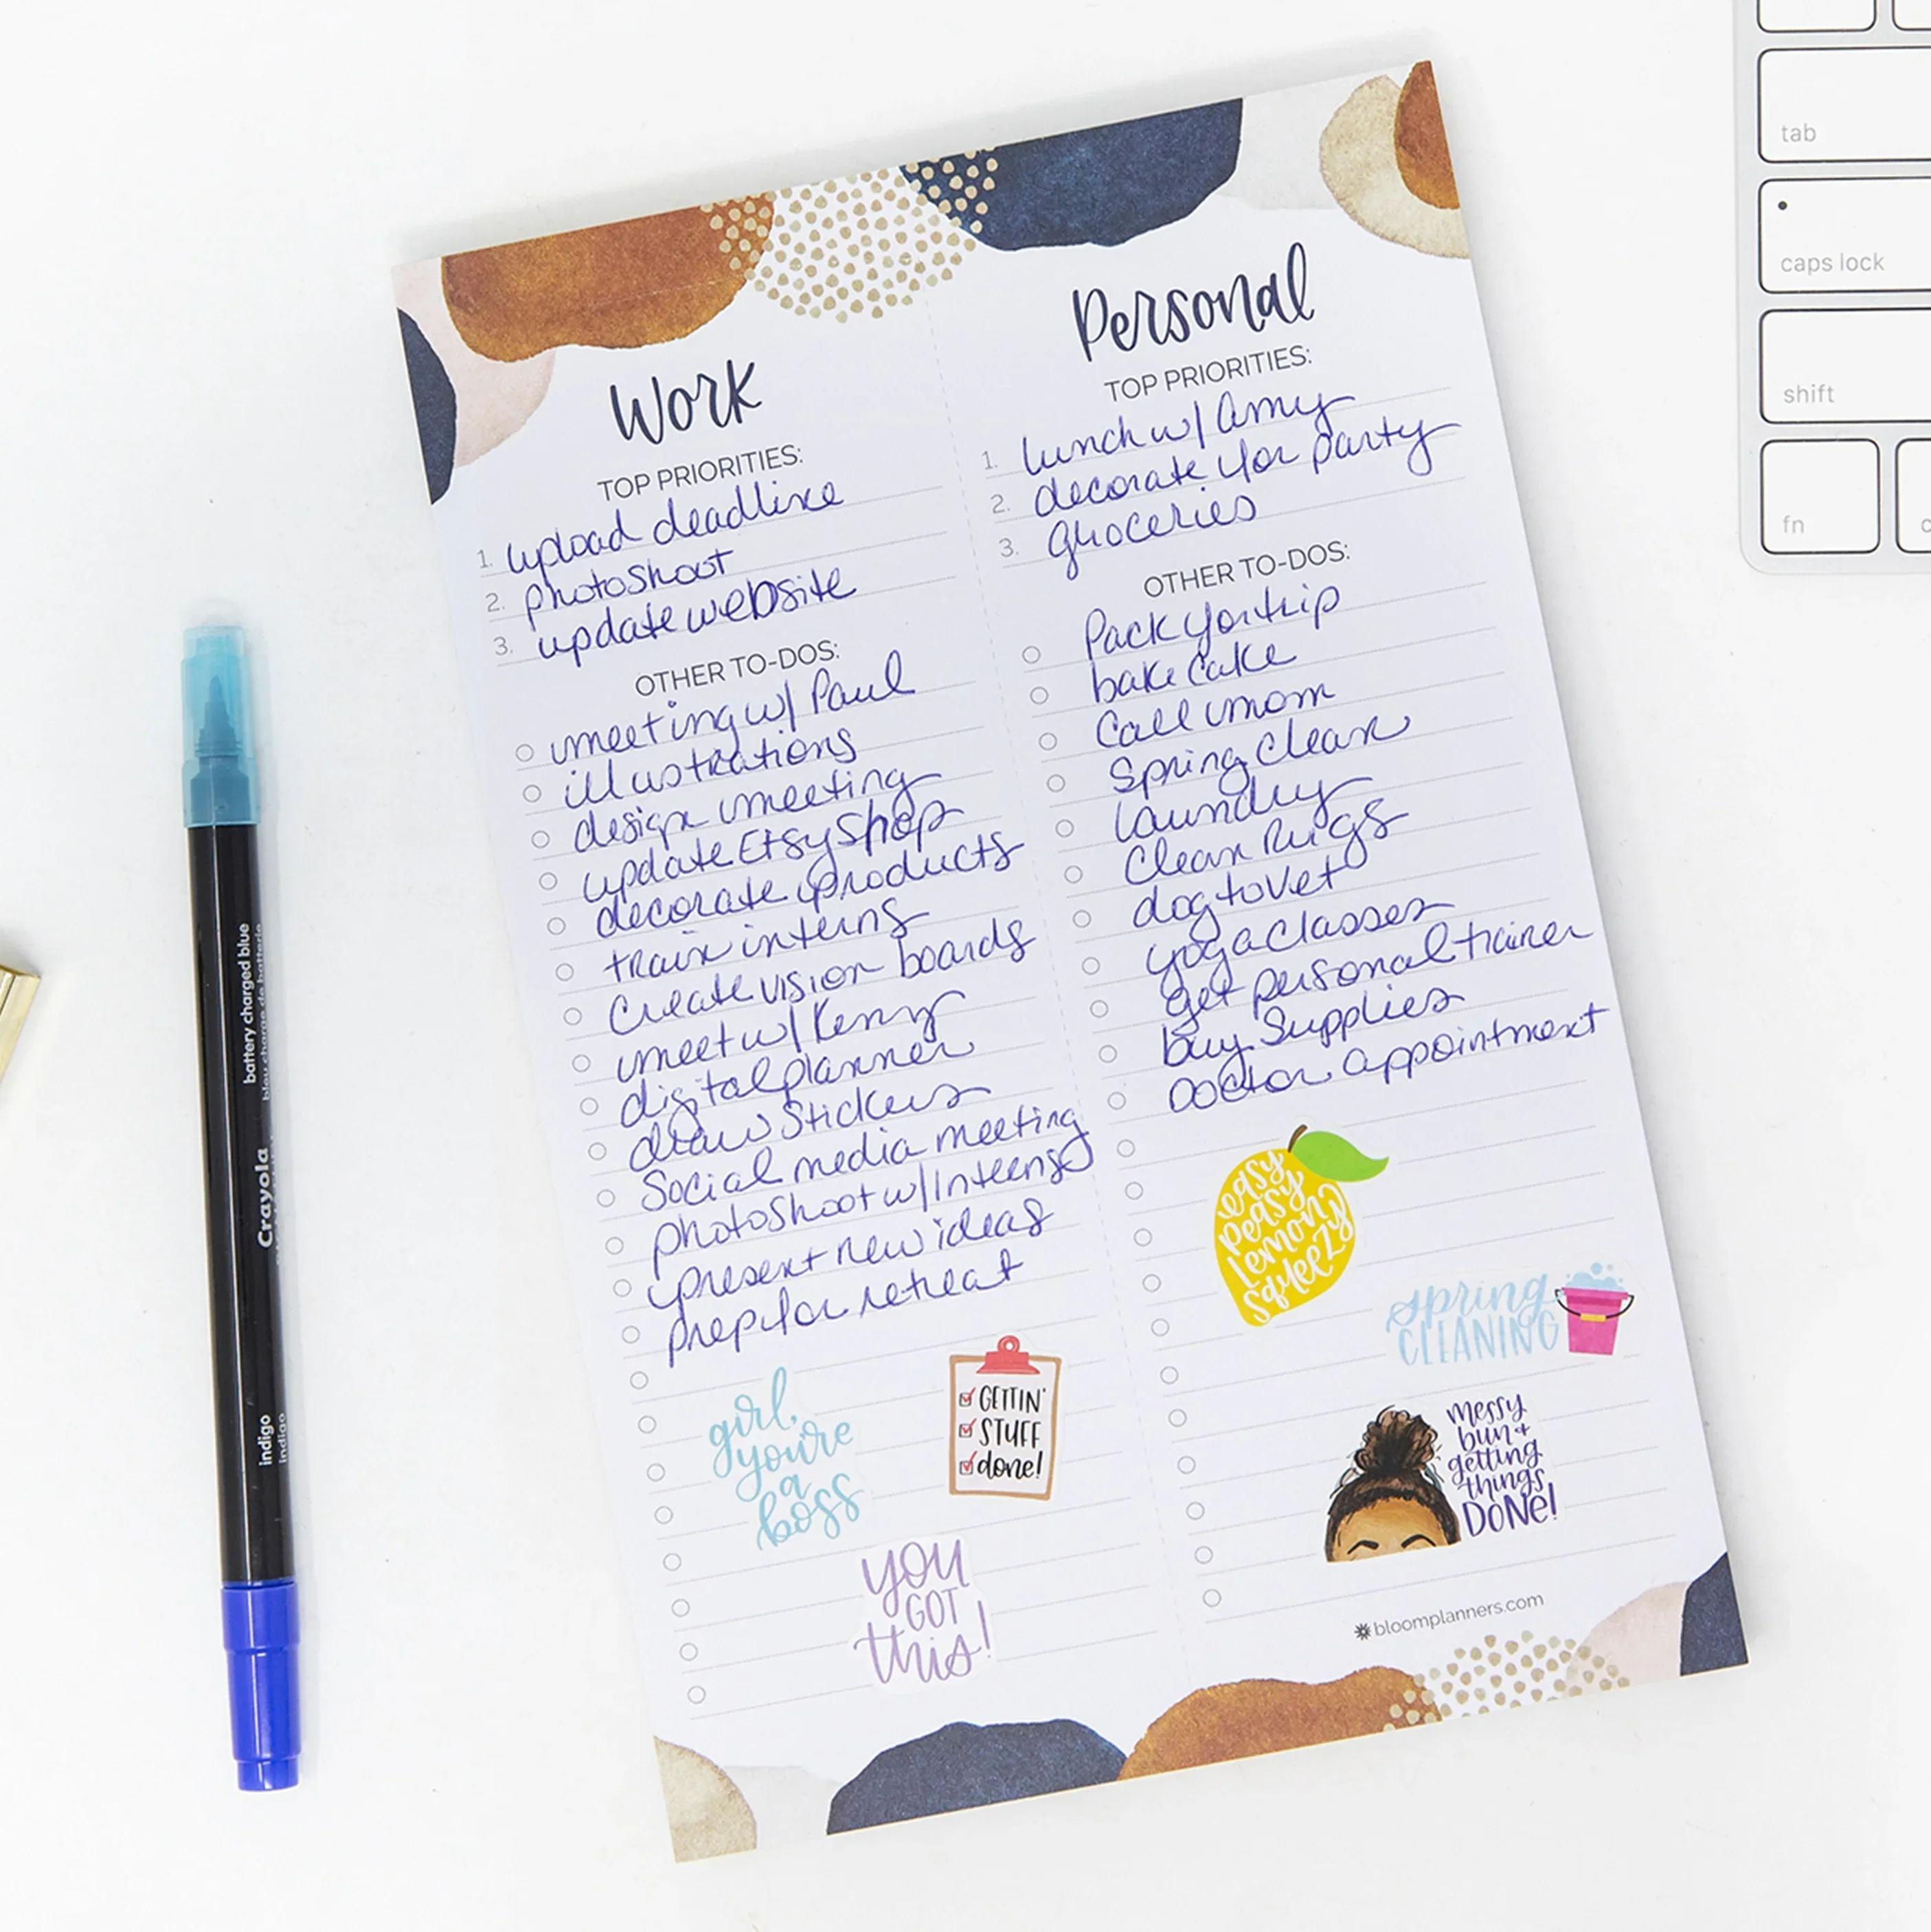 Work
TOP PRIORITIES:
1. upload deadline
2. photoshoot
3. update website
OTHER TO-DOS:
meeting w/ Paul
illustrations
design meeting
update Etsy Shop
decorate products
train interns
Create vision boards
meet w/ Kenny
digital planner
draw Stickers
Social media meeting
photoshoot w/ Interns
present new ideas
prep for retreat
girl,
you're
a
boss
GETTIN'
STUFF
done!
you
GOT
this!
Personal
TOP PRIORITIES:
1. lunch w/ Amy
2. decorate for party
3. groceries
OTHER TO-DOS:
Pack for trip
bake cake
Call mom
Spring Clean
laundry
Clean Rugs
dog to Vet
yoga classes
get personal trainer
buy Supplies
Doctor appointment
easy
peasy
lemon
squeezy
spring
CLEANING
messy
bun +
getting
things
DONE!
bloomplanners.com
battery charged blue
bleu charge de batterie
Crayola
indigo
indigo
tab
caps lock
shift
fn